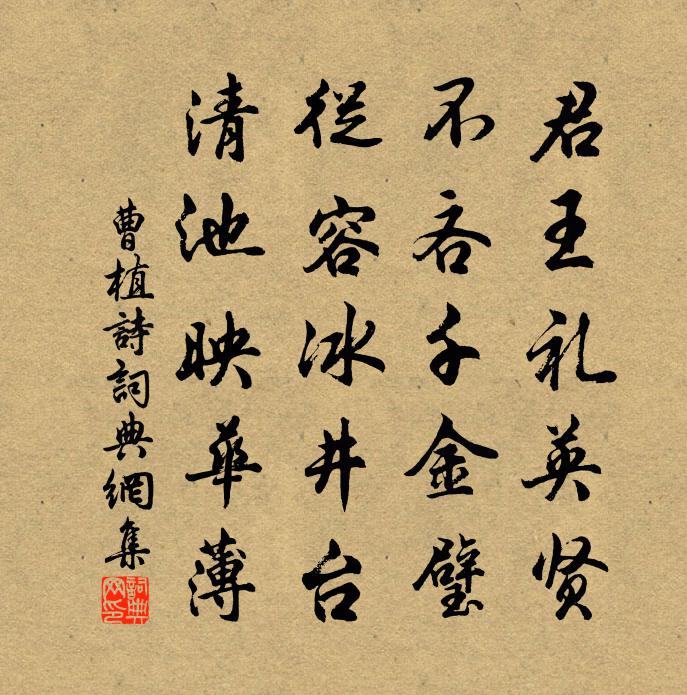 君王礼英贤
不吝千金璧
從容冰井台
清池映華薄
曹植詩詞典網集
詞典网印